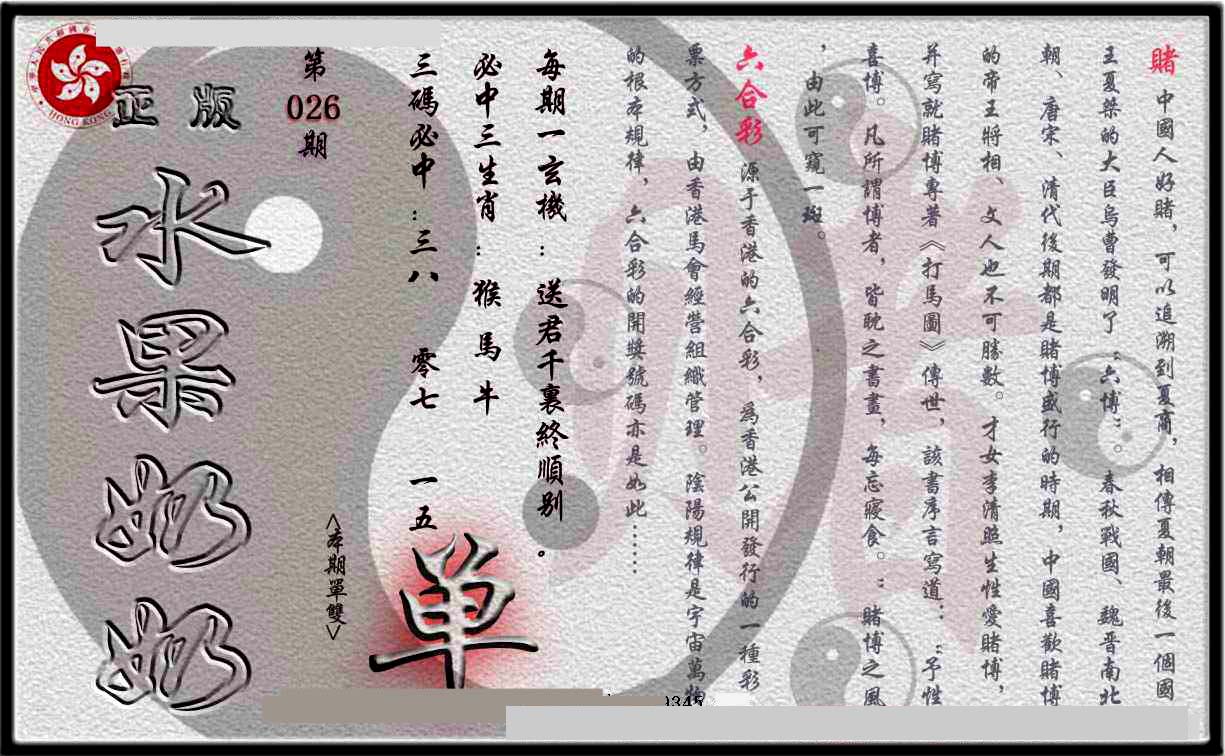 賭 中國人好賭，可以追溯到夏商，相傳夏朝最後一個國
王夏桀的大臣烏曹發明了“六博”。春秋戰國、魏晋南北
朝、唐宋、清代後期都是賭博盛行的時期，中國喜歡賭博
的帝王將相、文人也不可勝數。才女李清照生性愛賭博，
并寫就賭博專著《打馬圖》傳世，該書序言寫道：“予性
喜博。凡所謂博者，皆耽之書畫，每忘寢食。”賭博之風
，由此可窺一斑。
六合彩 源于香港的六合彩，爲香港公開發行的一種彩
票方式，由香港馬會經營組織管理。陰陽規律是宇宙萬物
的根本規律，六合彩的開獎號碼亦是如此……
每期一玄機：送君千裏終順别。
必中三生肖：猴 馬 牛
三碼必中：三八 零七 一五
单
<本期單雙>
第
026
期
正版
水果奶奶
HONG KONG
9345